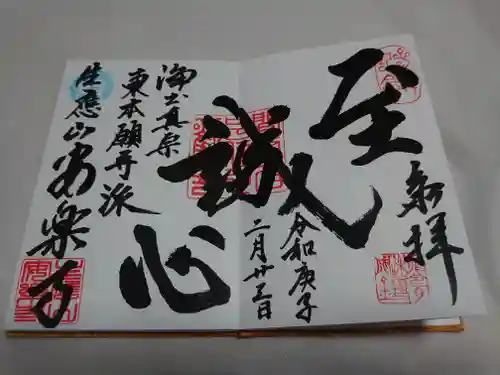 参拝
至誠心
令和庚子
二月廿三日
浄土真宗
東本願寺派
生應山安楽寺